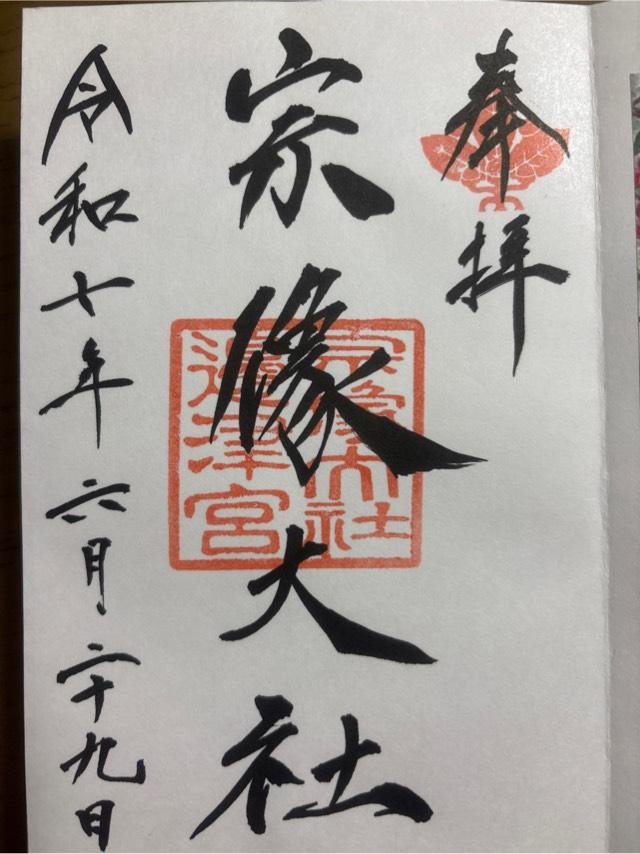 奉拝
宗像大社
宗像大社
邊津宮
令和七年六月二十九日